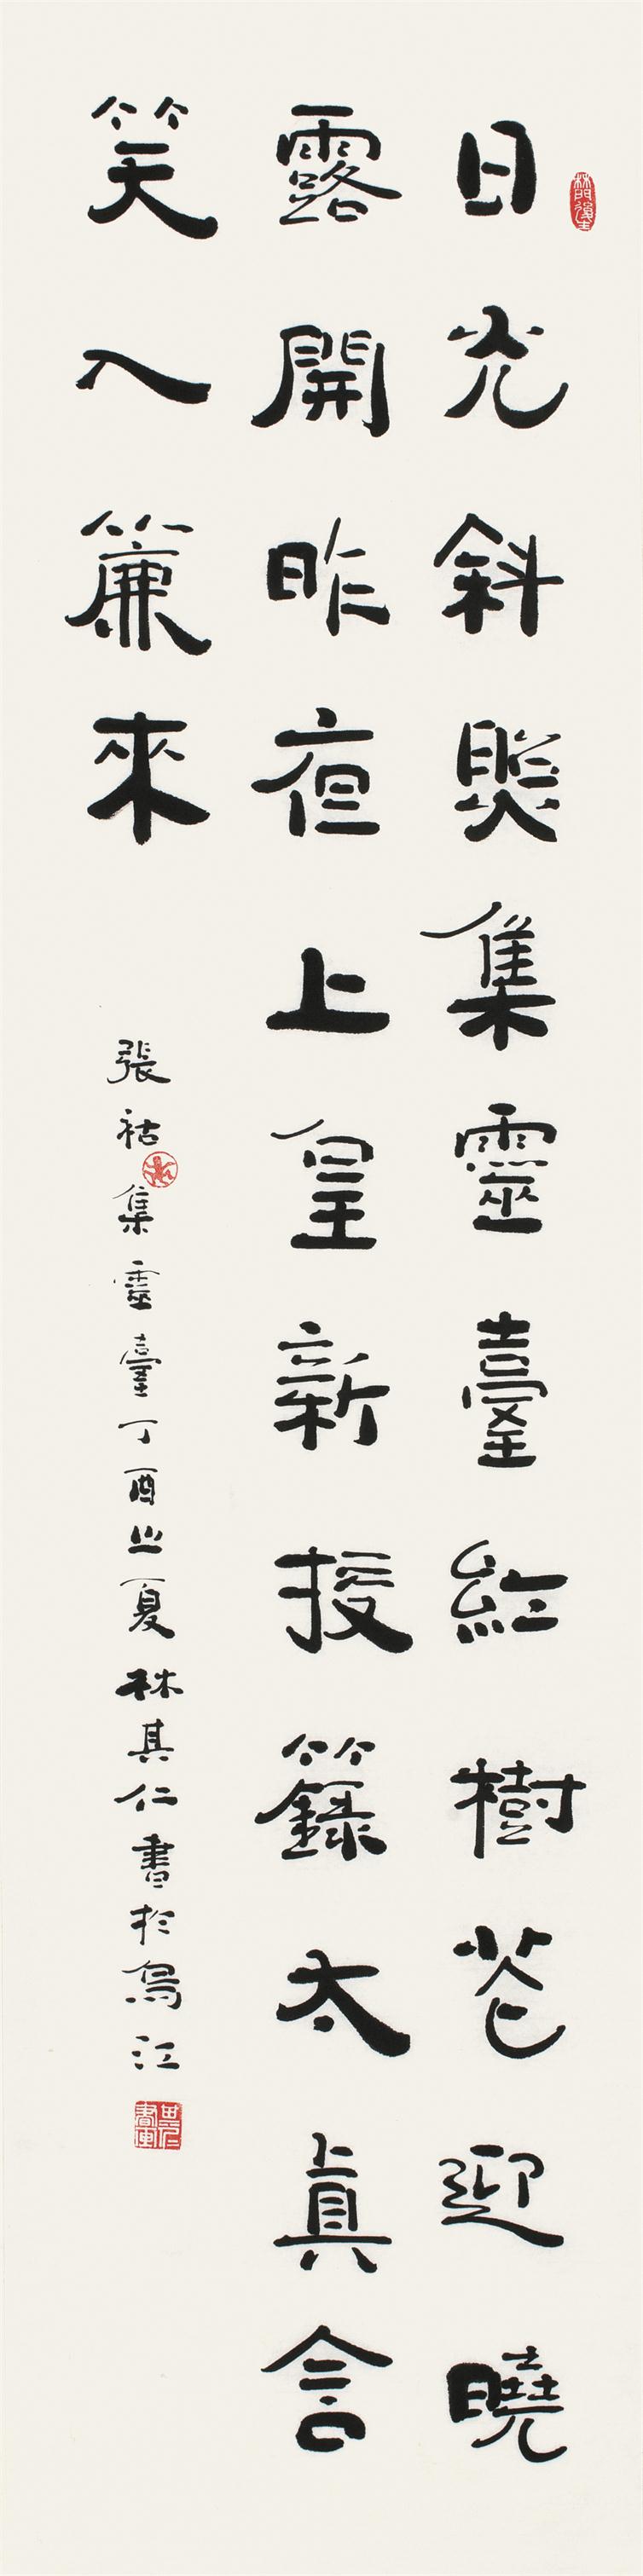 日光斜照集靈臺紅樹花迎曉
露開昨夜上皇新授籙太眞含
笑入簾來
張祜集靈臺丁酉之夏林其仁書於烏江